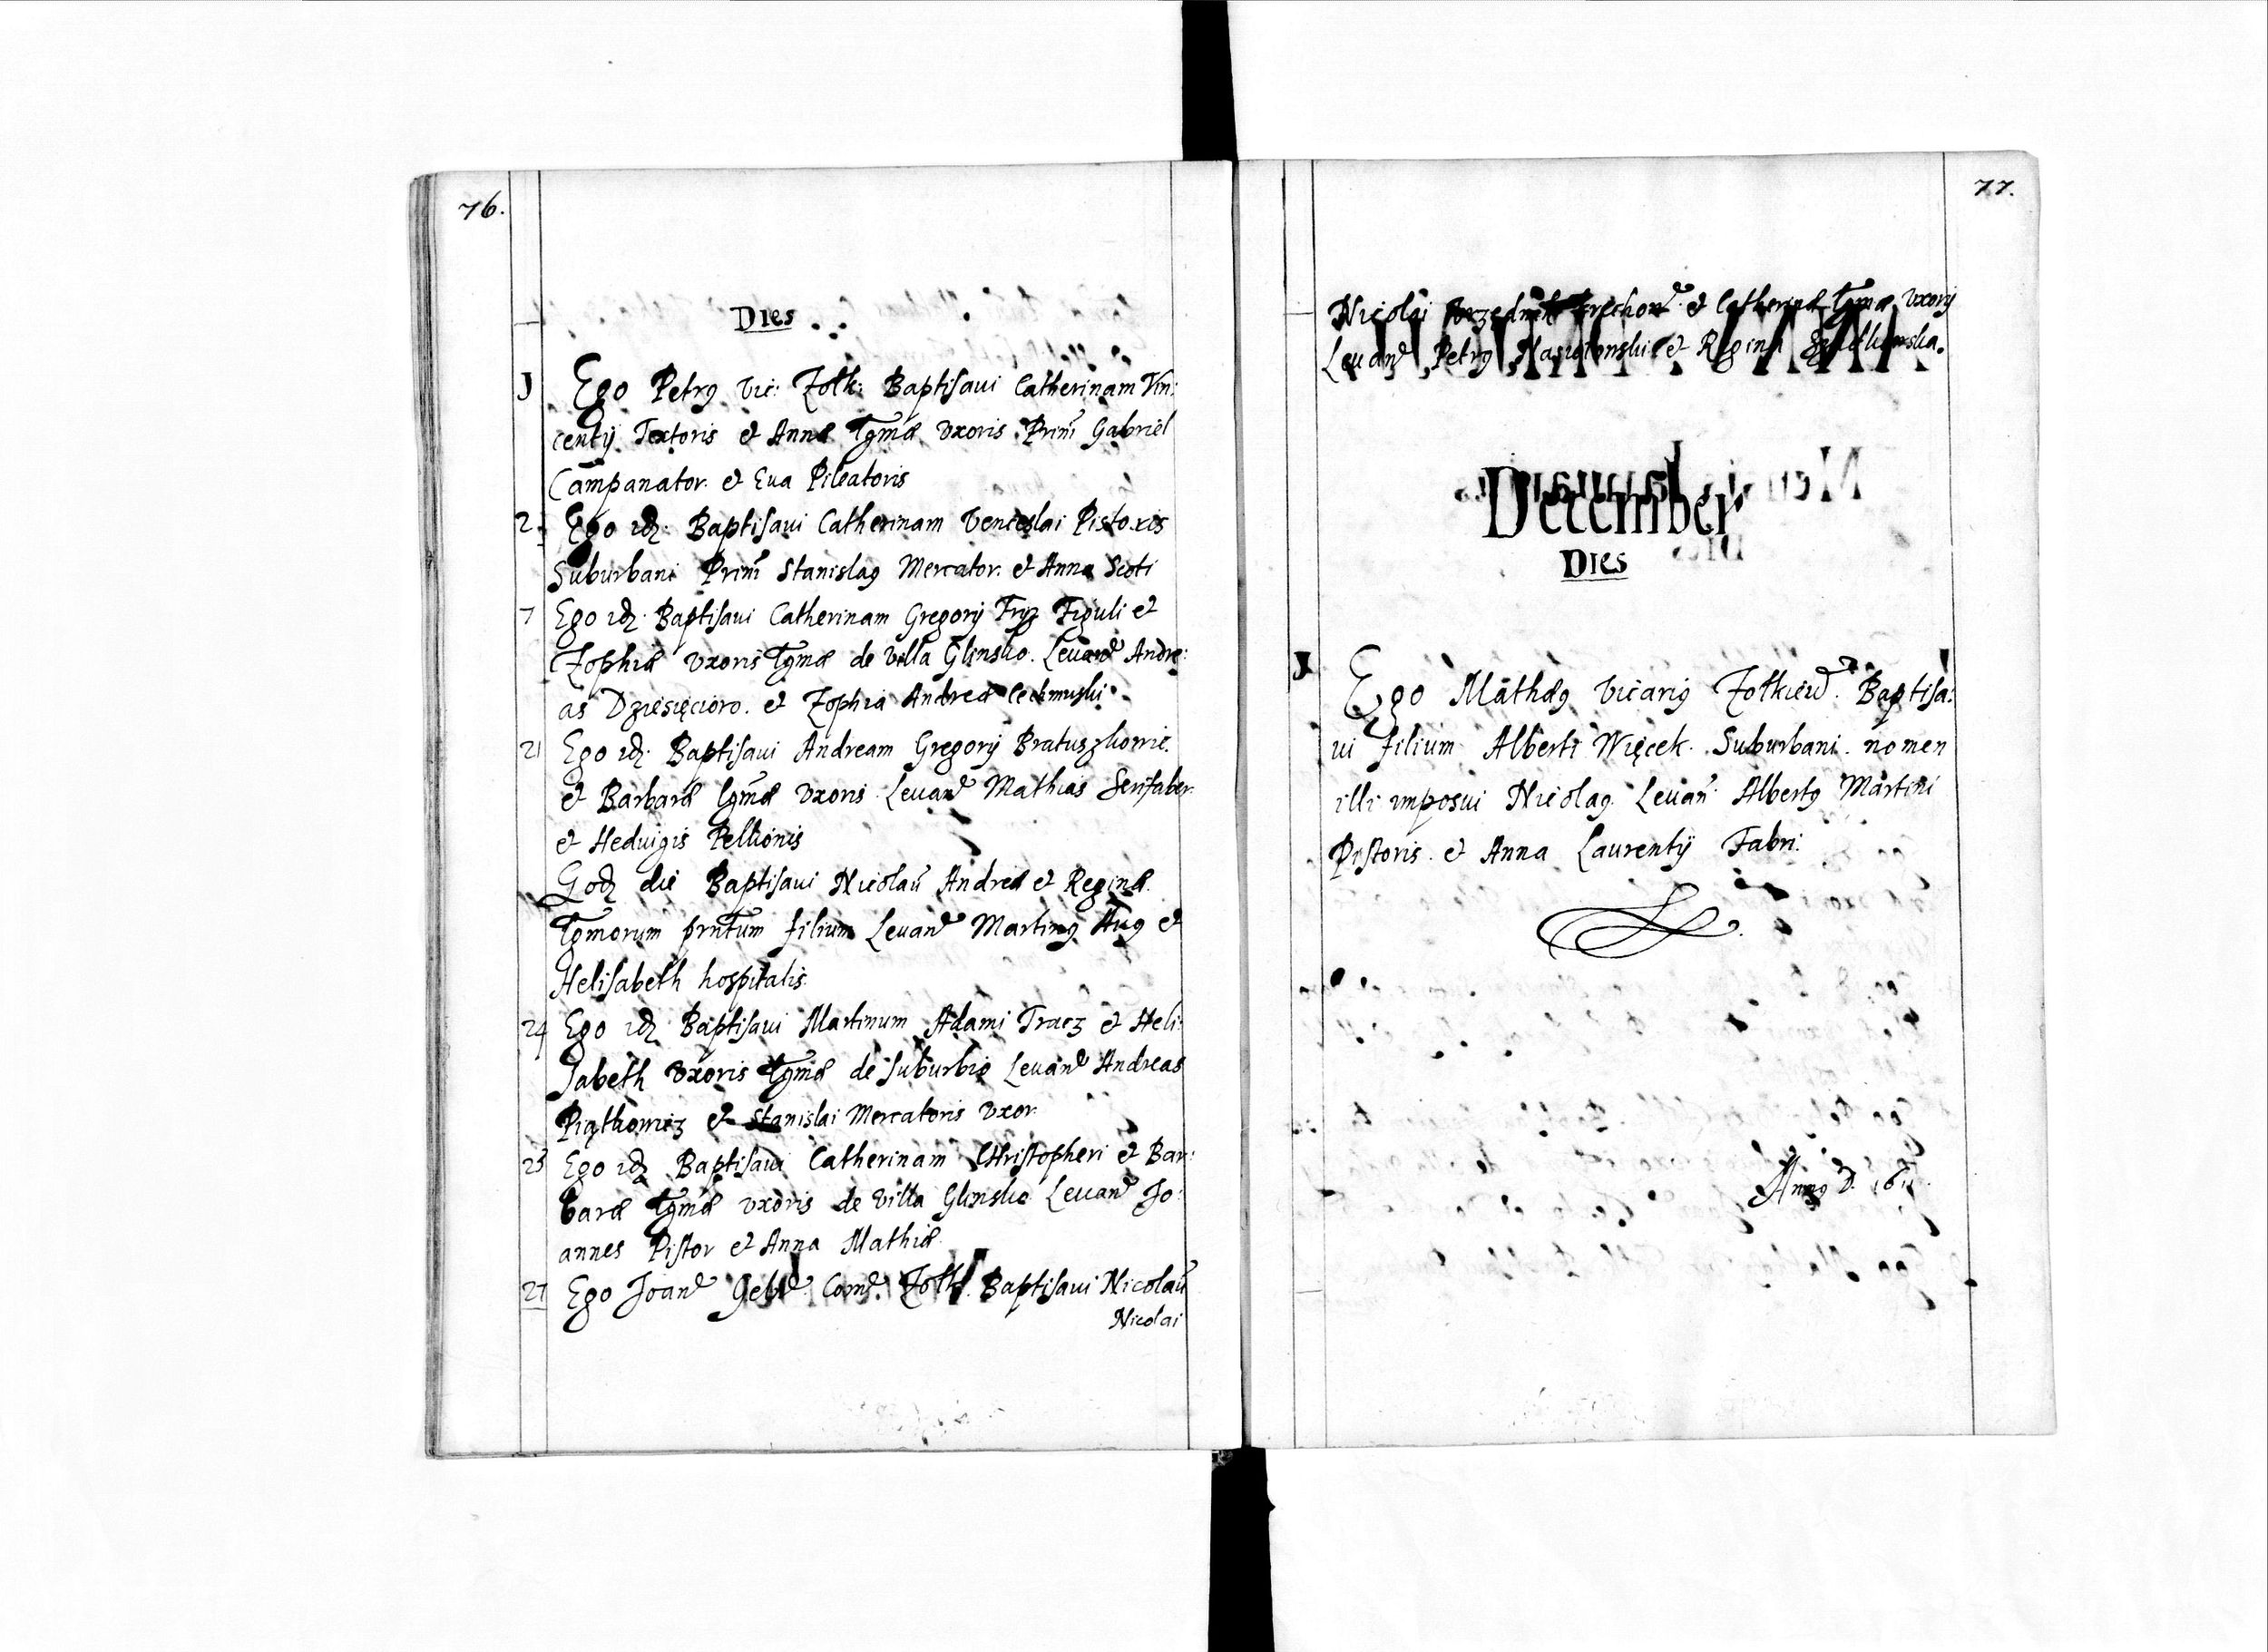 76.
Dies
1 Ego Petrꝰ Vic: Zolk: Baptisavi Catherinam Vin:
centij Textoris et Annæ lgmæ vxoris Prim̃ Gabriel
Campanator. et Eva Pileatoris
2. Ego idꝫ. Baptisavi Catherinam Venceslai Pistoris
Suburbani Prim̃ Stanislaꝰ Mercator. et Anna Scoti
7 Ego idꝫ. Baptisavi Catherinam Gregorij Fryz Figuli et
Zophiæ vxoris lgmæ de villa Glinsko. Levan̄ Andre:
as Dziesięcioro. et Zophia Andreæ
21 Ego idꝫ. Baptisavi Andream Gregorij Bratuszkowic.
et Barbaræ lgmæ vxoris Levan̄ Mathias Serifaber.
et Heduigis Pellionis
Eodꝫ die Baptisavi Nicolaũ Andreæ et Reginæ.
lgmorum prntum filium Levan̄ Martinꝰ et
Helisabeth hospitalis.
24 Ego idꝫ Baptisavi Martinum Adami Tracz et Heli:
sabeth vxoris lgmæ de suburbio Levan̄ Andreas
Piątkowicz et Stanislai Mercatoris vxor.
25 Ego idꝫ Baptisavi Catherinam Christopheri et Bar:
baræ lgmæ vxoris de villa Glinsko Levan̄ Jo:
annes Pistor et Anna Mathiæ.
27 Ego Joan̄ Com̄. Zolk. Baptisavi Nicolaũ
Nicolai
77.
Nicolai et Catherinæ lgmæ vxoris
Levan̄ Petrꝰ et Regina
December
Dies
1 Ego Mathæꝰ Vicariꝰ Zolkiew. Baptisa:
vi filium Alberti Więcek. Suburbani. nomen
illi imposui Nicolaꝰ. Levan̄. Albertꝰ Martini
Pistoris. et Anna Laurentij Fabri.